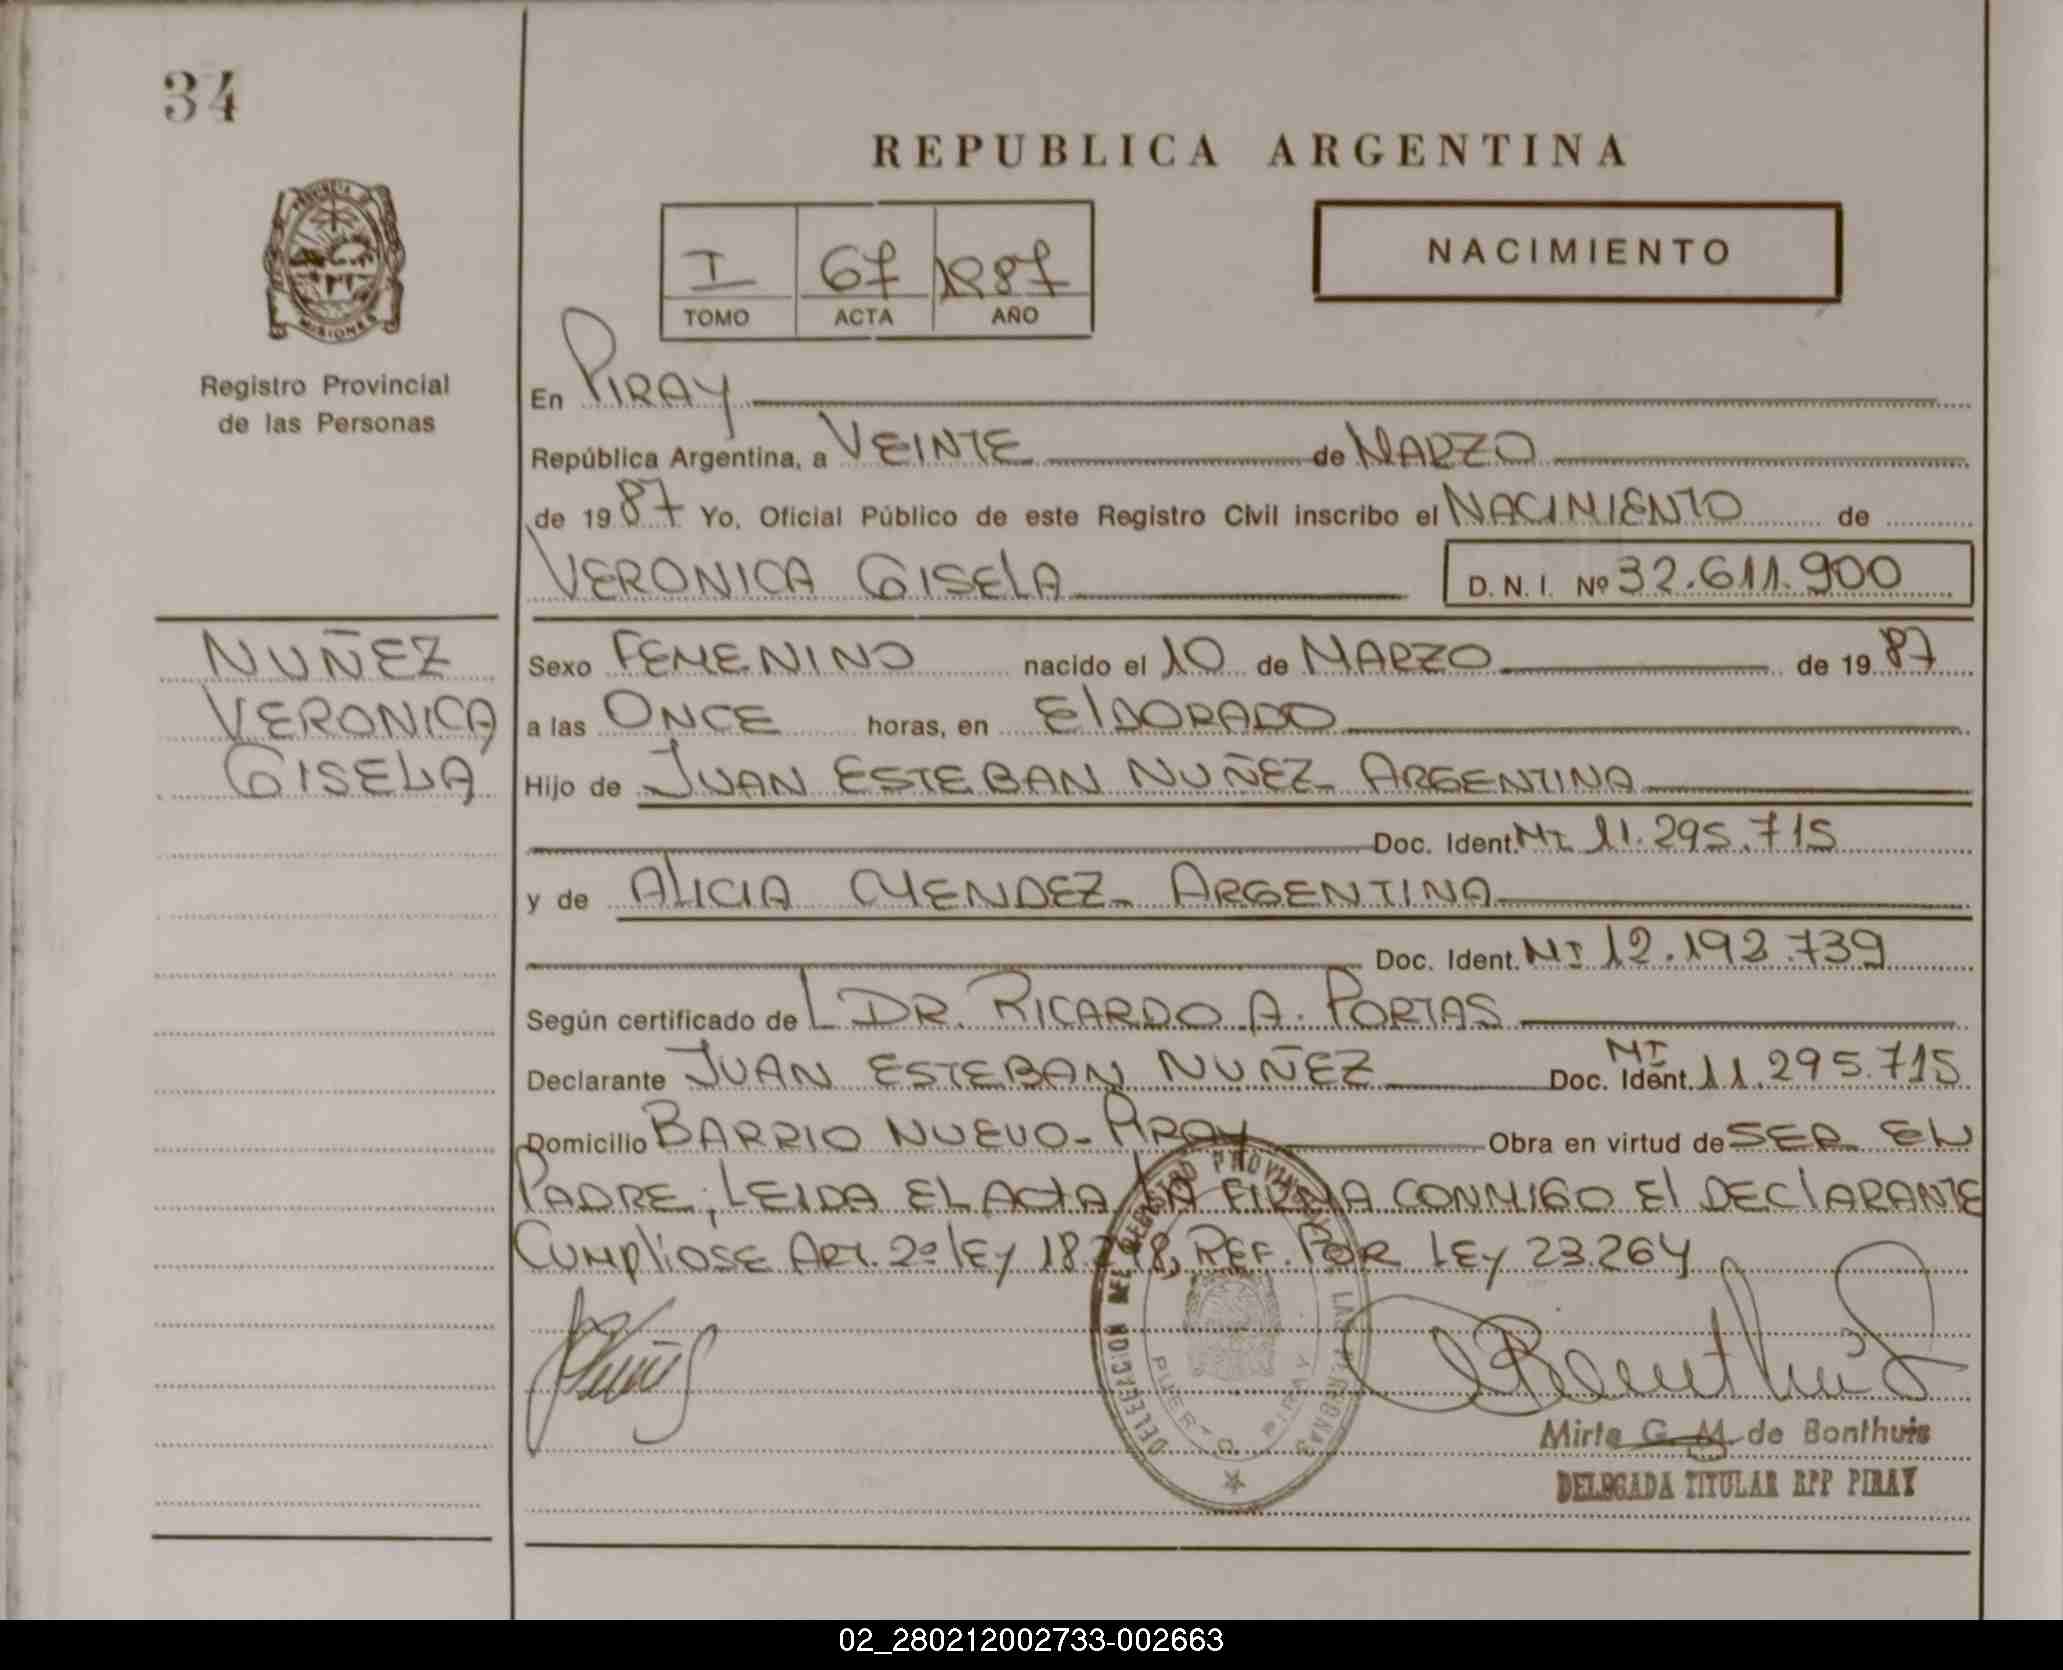 34
REPUBLICA ARGENTINA
PROVINCIA DE
MISIONES
I 67 1987
TOMO ACTA AÑO
NACIMIENTO
Registro Provincial
de las Personas
En PIRAY
República Argentina, a VEINTE de MARZO
de 1987 Yo, Oficial Público de este Registro Civil inscribo el NACIMIENTO de
VERONICA GISELA D. N. I. Nº 32.611.900
NUÑEZ
VERONICA
GISELA
Sexo FEMENINO nacido el 10 de MARZO de 1987
a las ONCE horas, en ElDORADO
Hijo de JUAN ESTEBAN NUÑEZ- ARGENTINA
Doc. Ident. MI 11.295.715
y de ALICIA MENDEZ- ARGENTINA
Doc. Ident. MI 12.192.739
Según certificado de L DR. RICARDO A. PORTAS
Declarante JUAN ESTEBAN NUÑEZ Doc. Ident. MI 11.295.715
Domicilio BARRIO NUEVO- PIRAY Obra en virtud de SER EL
PADRE; LEIDA EL ACTA LA FIRMA CONMIGO El DEClARANTE
CUMPlIOSE ART. 2º lEY 18.248, REF. POR LEY 23.264
DELEGACION DEL REGISTRO PROVINCIAL DE LAS PERSONAS
PUERTO PIRAY
Mirta G. M. de Bonthuis
DELEGADA TITULAR RPP PIRAY
02_280212002733-002663